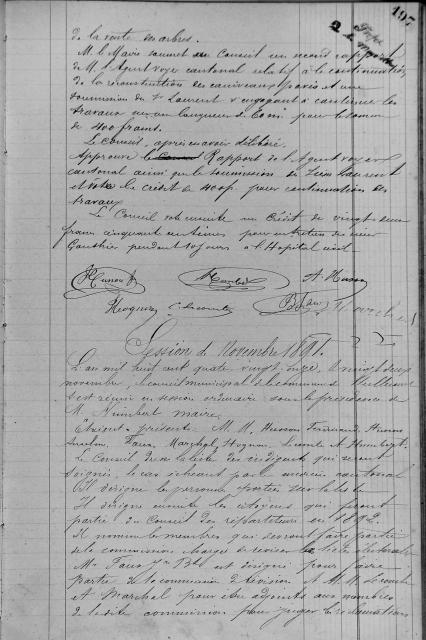 197
de la vente des arbres.
M. le Maire soumet au Conseil un second rapport
de M. l'Agent voyer cantonal relatif à la continuation
de la reconstruction des caniveaux pavés et une
soumission du Sr Laurent s'engageant à continuer les
travaux sur une longueur de pour la somme
de 400 francs.
Le Conseil, après en avoir délibéré.
Approuve le Rapport de l'Agent voyer
cantonal ainsi que la soumission de Léon Laurent
et vote le crédit de 400f. pour continuation des
travaux
Le Conseil vote ensuite un crédit de vingt deux
francs cinquante centimes pour entretien du sieur
Gauthier pendant jours à l'Hôpital
A. Husson
Session de Novembre 1891.
L'an mil huit cent quatre vingt onze, le vingt deux
novembre, le conseil municipal de la commune de
s'est réuni en session ordinaire sous la présidence de
M. Humbert maire.
Étaient présents M.M. Husson Ferdinand, Husson
Faux, Marchal, Hognon, Lecomte et Humbert.
Le Conseil la liste des indigents qui seront
soignés le cas échéant par le médecin cantonal
Il désigne les personnes portées sur la liste
Il désigne ensuite les citoyens qui feront
partie du Conseil des répartiteurs en 1892.
Il nomme les membres qui devront faire partie
de la commission chargée de reviser la liste électorale
Mr Faux Jn Bte est désigné pour faire
Partie de la commission de révision et M.M. Lecomte
et Marchal pour être adjoints aux membres
de la dite commission pour juger les réclamations